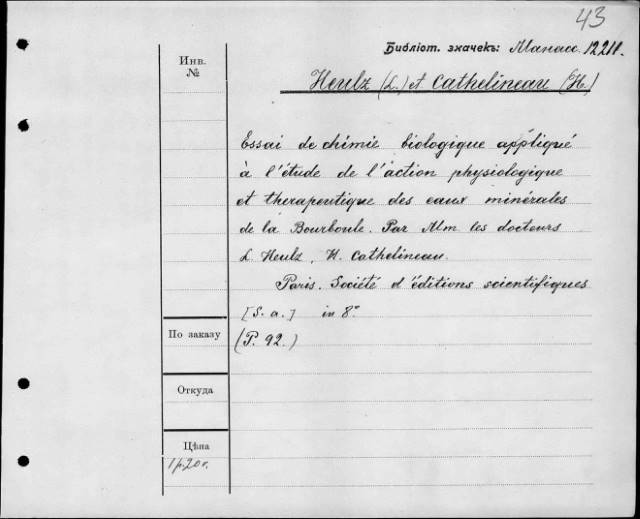 43
Библіот. значекъ: Манас. 12211.
Инв.
№
Heulz (L.) et Cathelineau (H.)
Essai de chimie biologique appliqué
à l'étude de l'action physiologique
et therapeutique des eaux minérales
de la Bourboule. Par Mm les docteurs
L. Heulz, H. Cathelineau.
Paris. Société d'éditions scientifiques
[S. a.] in 8°
По заказу
(P. 92.)
Откуда
Цѣна
1 р. 20 к.